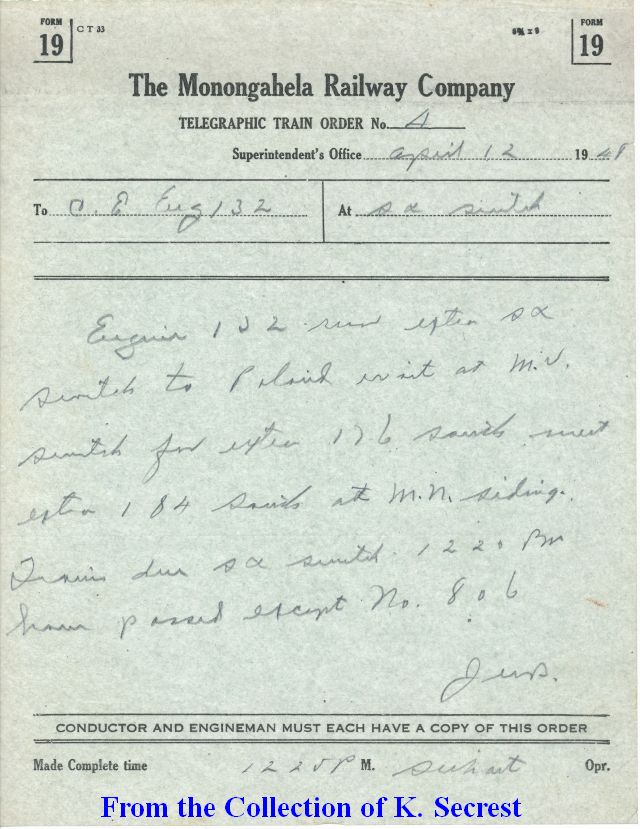 FORM
19
C T 33
8½ x 9
FORM
19
The Monongahela Railway Company
TELEGRAPHIC TRAIN ORDER No. 4
Superintendent's Office April 12 1948
To C. E Eng 132
At sx switch
Engine 132 run extra sx
switch to Poland wait at M.V.
switch for extra 176 south meet
extra 184 south at M.N. siding.
Trains due sx switch 12 20 Pm
have passed except No. 806
CONDUCTOR AND ENGINEMAN MUST EACH HAVE A COPY OF THIS ORDER
Made Complete time 12 25 P M. Opr.
From the Collection of K. Secrest